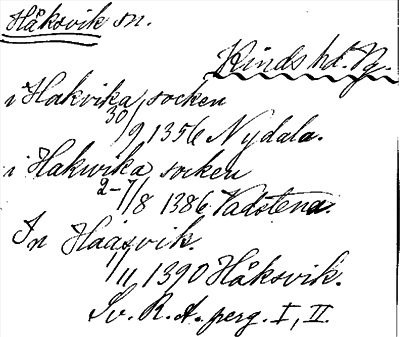 Håksvik sn.
Kinds hd. Vg.
i Hakvika socken
30/9 1356 Nydala.
i Hakwika socken
2-7/8 1386 Vadstena.
In Haaxvik.
1/11 1390 Håksvik.
Sv. R. A. perg. I, II.